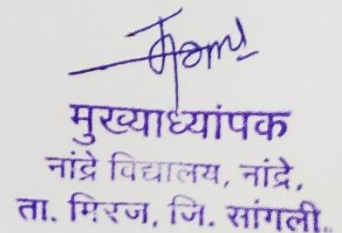 मुख्याध्यापक
नांद्रे विद्यालय, नांद्रे,
ता. मिरज, जि. सांगली.